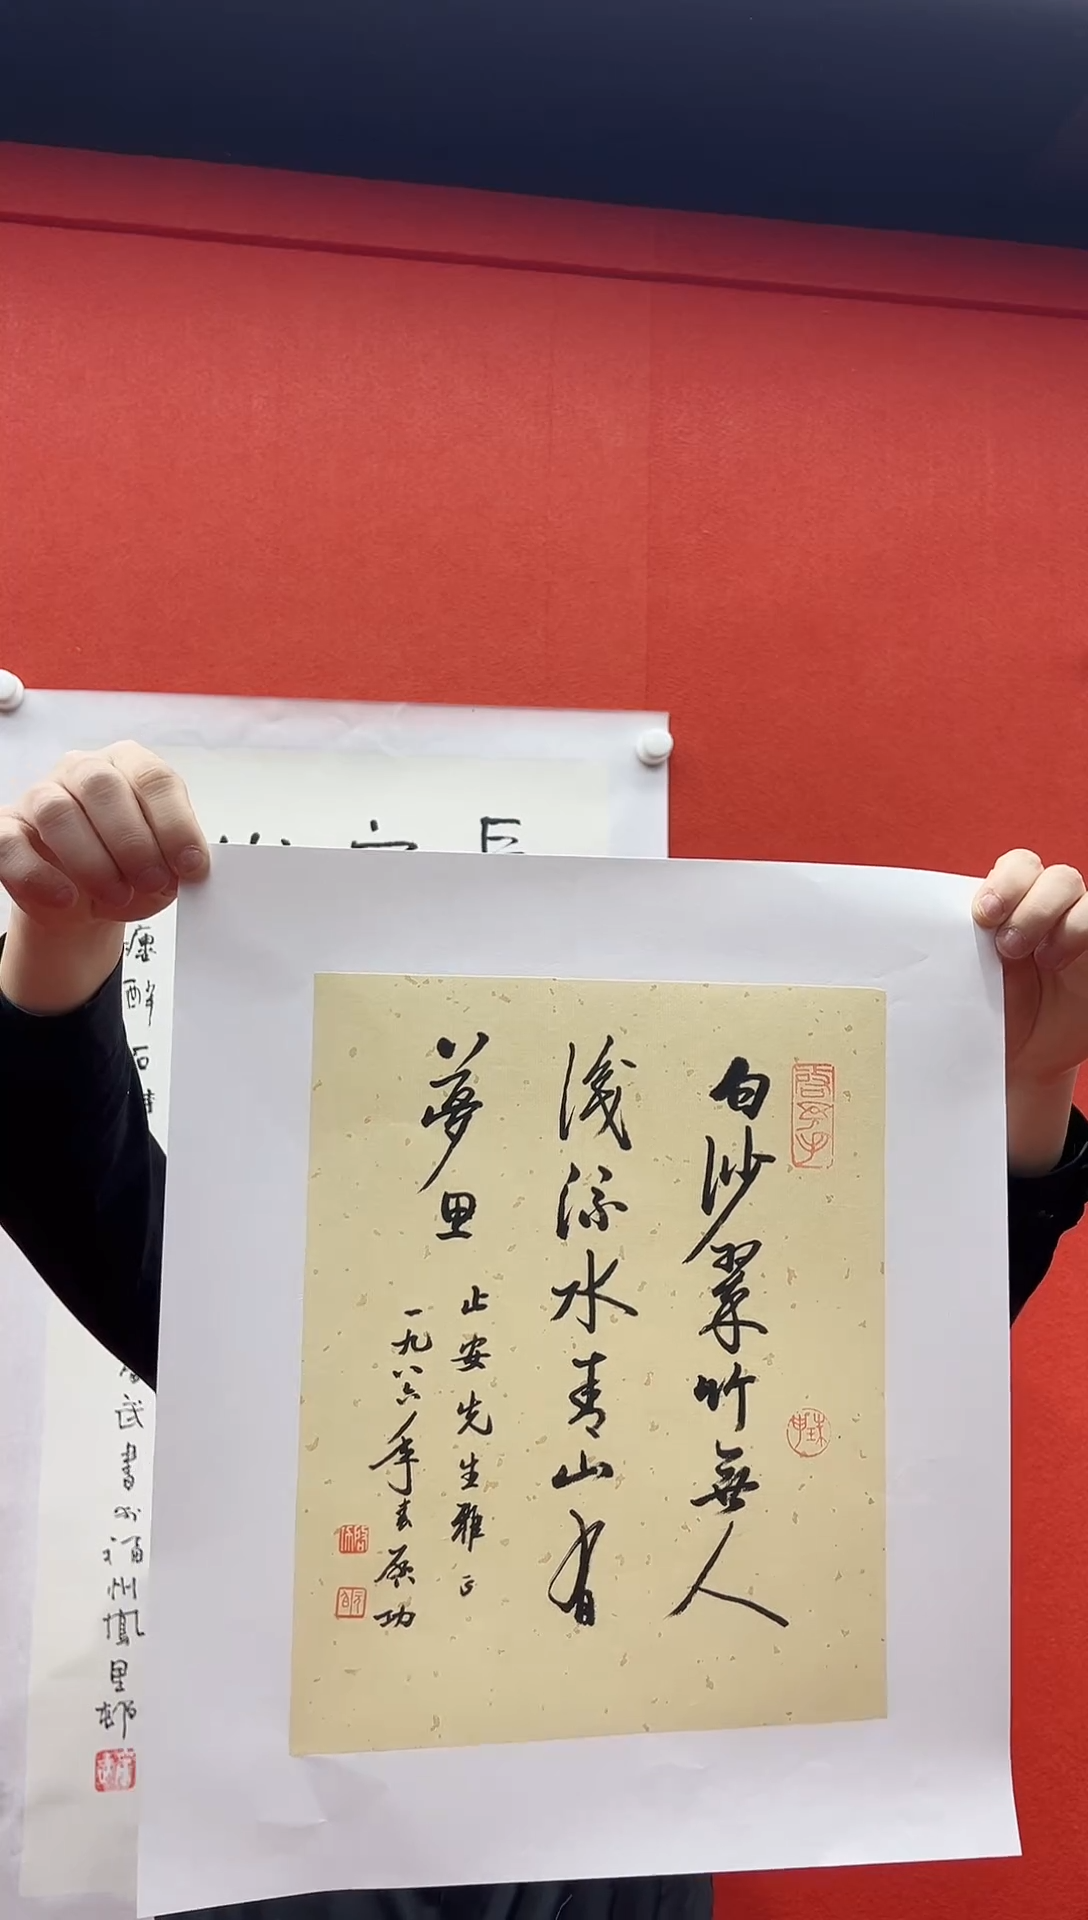 白沙翠竹無人
淺深水青山有
夢里
止安先生雅正
一九八六年春启功
長
醉石
武書於福州鳳里邨